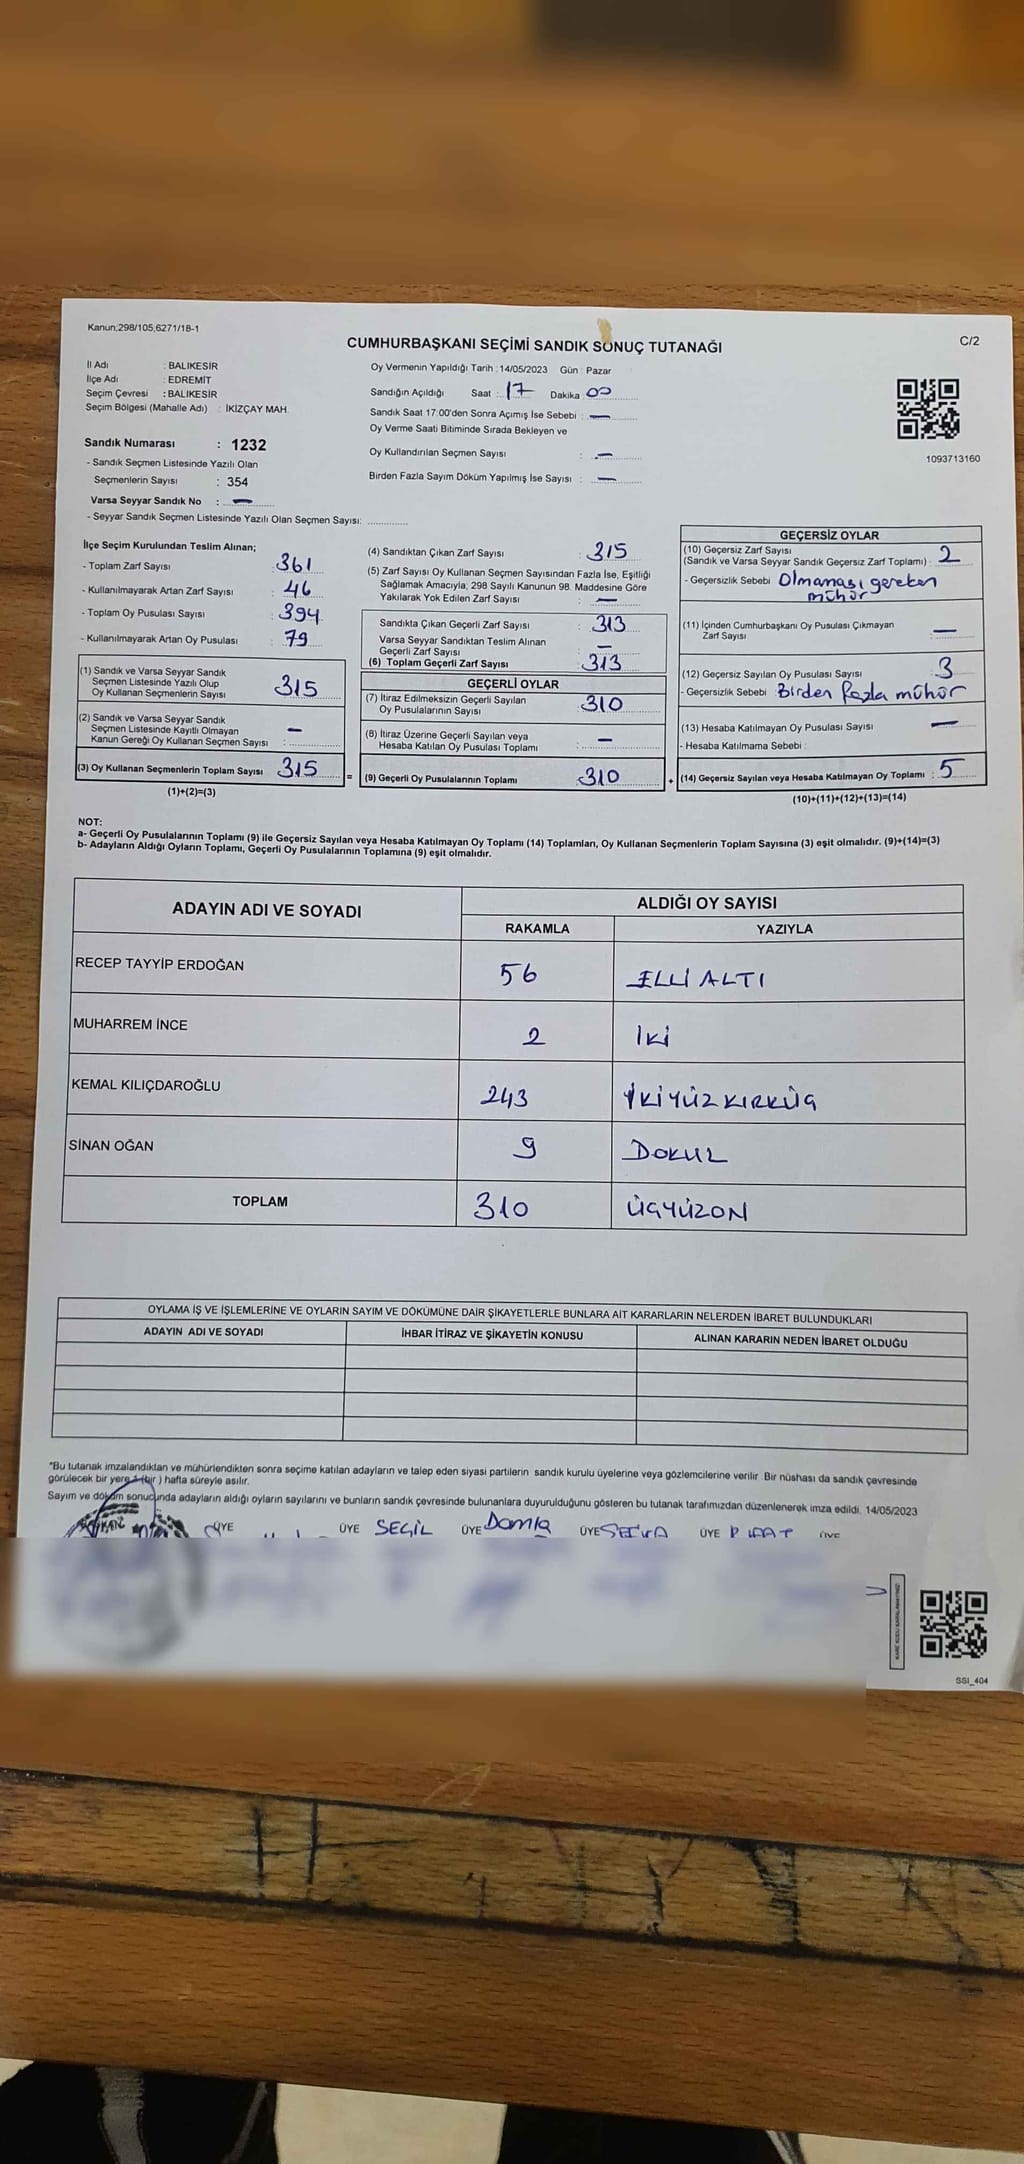 Kanun;298/105,6271/18-1
CUMHURBAŞKANI SEÇİMİ SANDIK SONUÇ TUTANAĞI
C/2
İl Adı : BALIKESİR
İlçe Adı : EDREMİT
Seçim Çevresi : BALIKESİR
Seçim Bölgesi (Mahalle Adı) : İKİZÇAY MAH.
Oy Vermenin Yapıldığı Tarih : 14/05/2023 Gün : Pazar
Sandığın Açıldığı Saat : 17 Dakika : 00
Sandık Saat 17:00'den Sonra Açımış İse Sebebi : —
Oy Verme Saati Bitiminde Sırada Bekleyen ve
Oy Kullandırılan Seçmen Sayısı : —
Birden Fazla Sayım Döküm Yapılmış İse Sayısı : —
1093713160
Sandık Numarası : 1232
- Sandık Seçmen Listesinde Yazılı Olan
Seçmenlerin Sayısı : 354
Varsa Seyyar Sandık No : —
- Seyyar Sandık Seçmen Listesinde Yazılı Olan Seçmen Sayısı: ............
İlçe Seçim Kurulundan Teslim Alınan;
- Toplam Zarf Sayısı : 361
- Kullanılmayarak Artan Zarf Sayısı : 46
- Toplam Oy Pusulası Sayısı : 394
- Kullanılmayarak Artan Oy Pusulası : 79
(1) Sandık ve Varsa Seyyar Sandık
Seçmen Listesinde Yazılı Olup
Oy Kullanan Seçmenlerin Sayısı : 315
(2) Sandık ve Varsa Seyyar Sandık
Seçmen Listesinde Kayıtlı Olmayan
Kanun Gereği Oy Kullanan Seçmen Sayısı : —
(3) Oy Kullanan Seçmenlerin Toplam Sayısı : 315
(1)+(2)=(3)
(4) Sandıktan Çıkan Zarf Sayısı : 315
(5) Zarf Sayısı Oy Kullanan Seçmen Sayısından Fazla İse, Eşitliği
Sağlamak Amacıyla; 298 Sayılı Kanunun 98. Maddesine Göre
Yakılarak Yok Edilen Zarf Sayısı : —
Sandıkta Çıkan Geçerli Zarf Sayısı : 313
Varsa Seyyar Sandıktan Teslim Alınan
Geçerli Zarf Sayısı : —
(6) Toplam Geçerli Zarf Sayısı : 313
GEÇERLİ OYLAR
(7) İtiraz Edilmeksizin Geçerli Sayılan
Oy Pusulalarının Sayısı : 310
(8) İtiraz Üzerine Geçerli Sayılan veya
Hesaba Katılan Oy Pusulası Toplamı : —
= (9) Geçerli Oy Pusulalarının Toplamı : 310
GEÇERSİZ OYLAR
(10) Geçersiz Zarf Sayısı
(Sandık ve Varsa Seyyar Sandık Geçersiz Zarf Toplamı) : 2
- Geçersizlik Sebebi : Olmaması gereken
mühür
(11) İçinden Cumhurbaşkanı Oy Pusulası Çıkmayan
Zarf Sayısı : —
(12) Geçersiz Sayılan Oy Pusulası Sayısı : 3
- Geçersizlik Sebebi : Birden fazla mühür
(13) Hesaba Katılmayan Oy Pusulası Sayısı : —
- Hesaba Katılmama Sebebi :
+ (14) Geçersiz Sayılan veya Hesaba Katılmayan Oy Toplamı : 5
(10)+(11)+(12)+(13)=(14)
NOT:
a- Geçerli Oy Pusulalarının Toplamı (9) ile Geçersiz Sayılan veya Hesaba Katılmayan Oy Toplamı (14) Toplamları, Oy Kullanan Seçmenlerin Toplam Sayısına (3) eşit olmalıdır. (9)+(14)=(3)
b- Adayların Aldığı Oyların Toplamı, Geçerli Oy Pusulalarının Toplamına (9) eşit olmalıdır.
ADAYIN ADI VE SOYADI ALDIĞI OY SAYISI
RAKAMLA YAZIYLA
RECEP TAYYİP ERDOĞAN 56 ELLİ ALTI
MUHARREM İNCE 2 İKİ
KEMAL KILIÇDAROĞLU 243 İKİYÜZKIRKÜÇ
SİNAN OĞAN 9 DOKUZ
TOPLAM 310 ÜÇYÜZON
OYLAMA İŞ VE İŞLEMLERİNE VE OYLARIN SAYIM VE DÖKÜMÜNE DAİR ŞİKAYETLERLE BUNLARA AİT KARARLARIN NELERDEN İBARET BULUNDUKLARI
ADAYIN ADI VE SOYADI İHBAR İTİRAZ VE ŞİKAYETİN KONUSU ALINAN KARARIN NEDEN İBARET OLDUĞU
*Bu tutanak imzalandıktan ve mühürlendikten sonra seçime katılan adayların ve talep eden siyasi partilerin sandık kurulu üyelerine veya gözlemcilerine verilir. Bir nüshası da sandık çevresinde
görülecek bir yere 1 (bir ) hafta süreyle asılır.
Sayım ve döküm sonucunda adayların aldığı oyların sayılarını ve bunların sandık çevresinde bulunanlara duyurulduğunu gösteren bu tutanak tarafımızdan düzenlenerek imza edildi. 14/05/2023
ÜYE ÜYE SEÇİL ÜYE Damla ÜYE ÜYE ÜYE
SSI_404